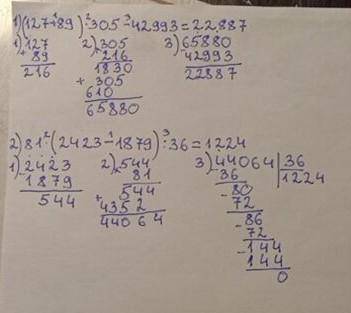 1) (127+89)·305-42993=22887
1) 127 2) 305 3) 65880
+ 89 · 216 - 42993
216 1830 22887
+ 305
610
65880
2) 81·(2423-1879):36=1224
1) 2423 2) 544 3) 44064 | 36
- 1879 · 81 - 36 1224
544 544 - 80
+ 4352 72
44064 - 86
72
- 144
144
0